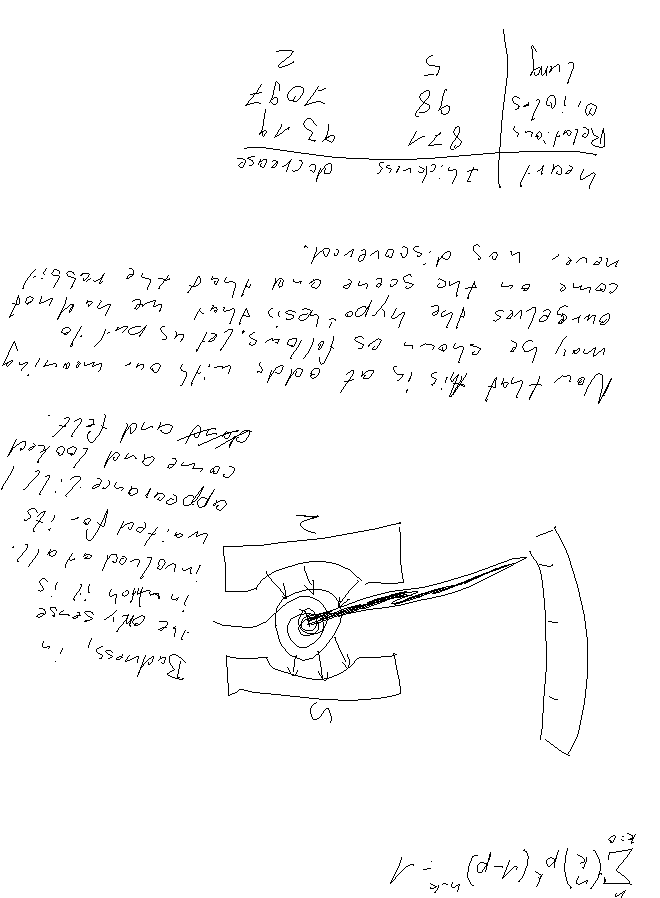 \sum_{k=0}^{n} \binom{n}{k} p^k (1-p)^{n-k} = 1
Badness, in
the only sense
in which it is
involved at all.
waited for its
appearance till I
come and looked
and felt.
S
Now that this is at odds with our meaning
may be shown as follows. Let us put to
ourselves the hypothesis that we had not
come on the scene and that the rabbit
never was discovered.
heart thickness decrease
Relations 871 9319
98 7097
Lung 5 2